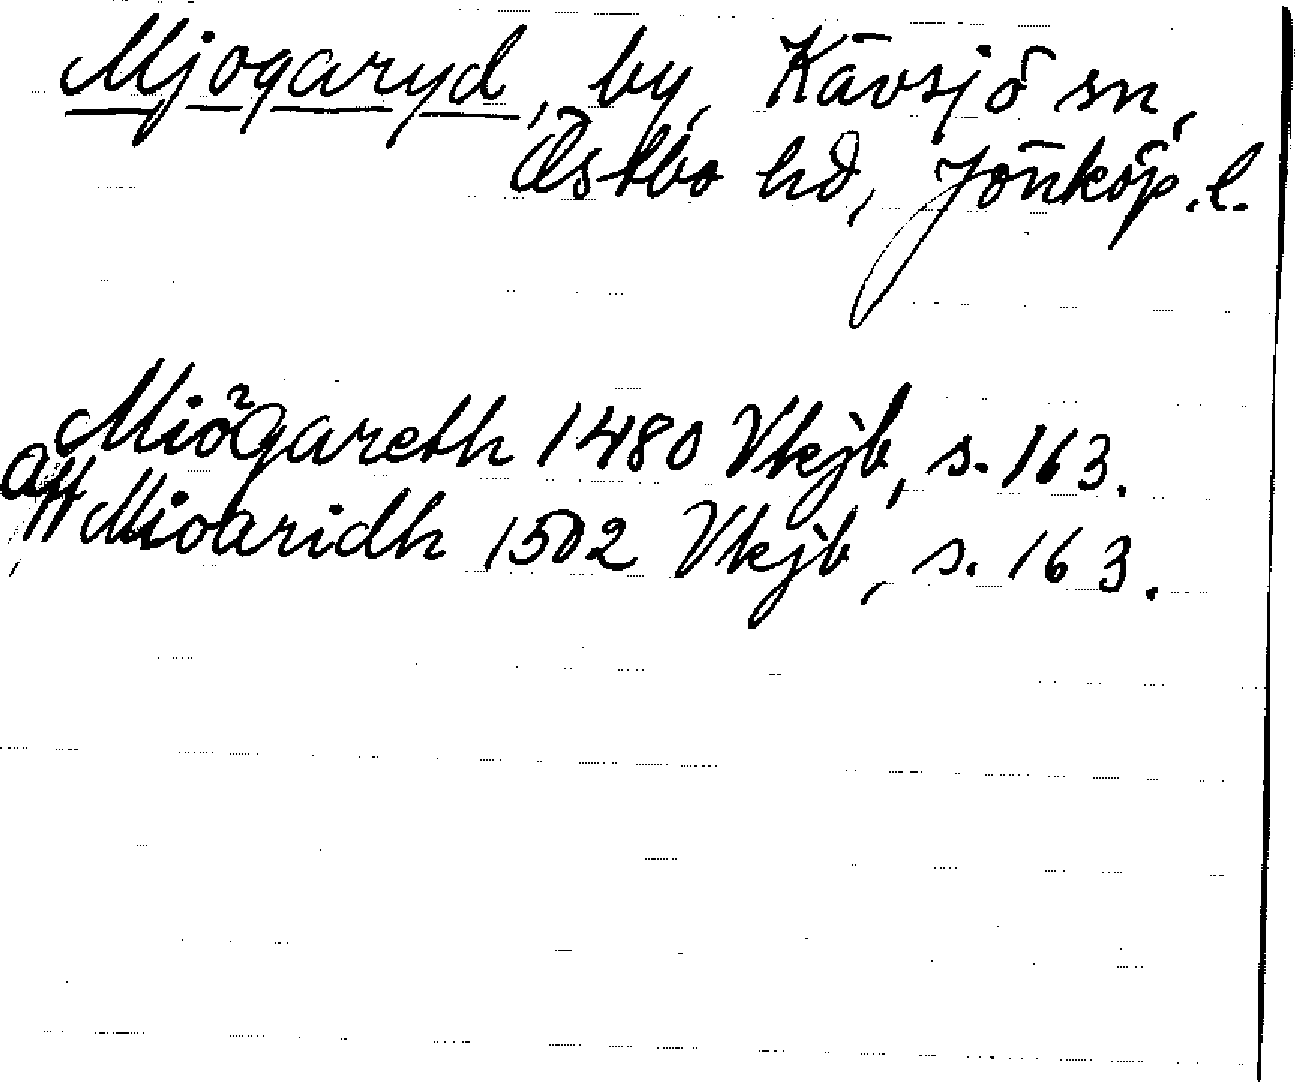 Mjogaryd, by, Kävsjö sn,
Östbo hd, Jönköp. l.
Miögareth 1480 Vkjb, s. 163.
aff Mioaridh 1502 Vkjb, s. 163.